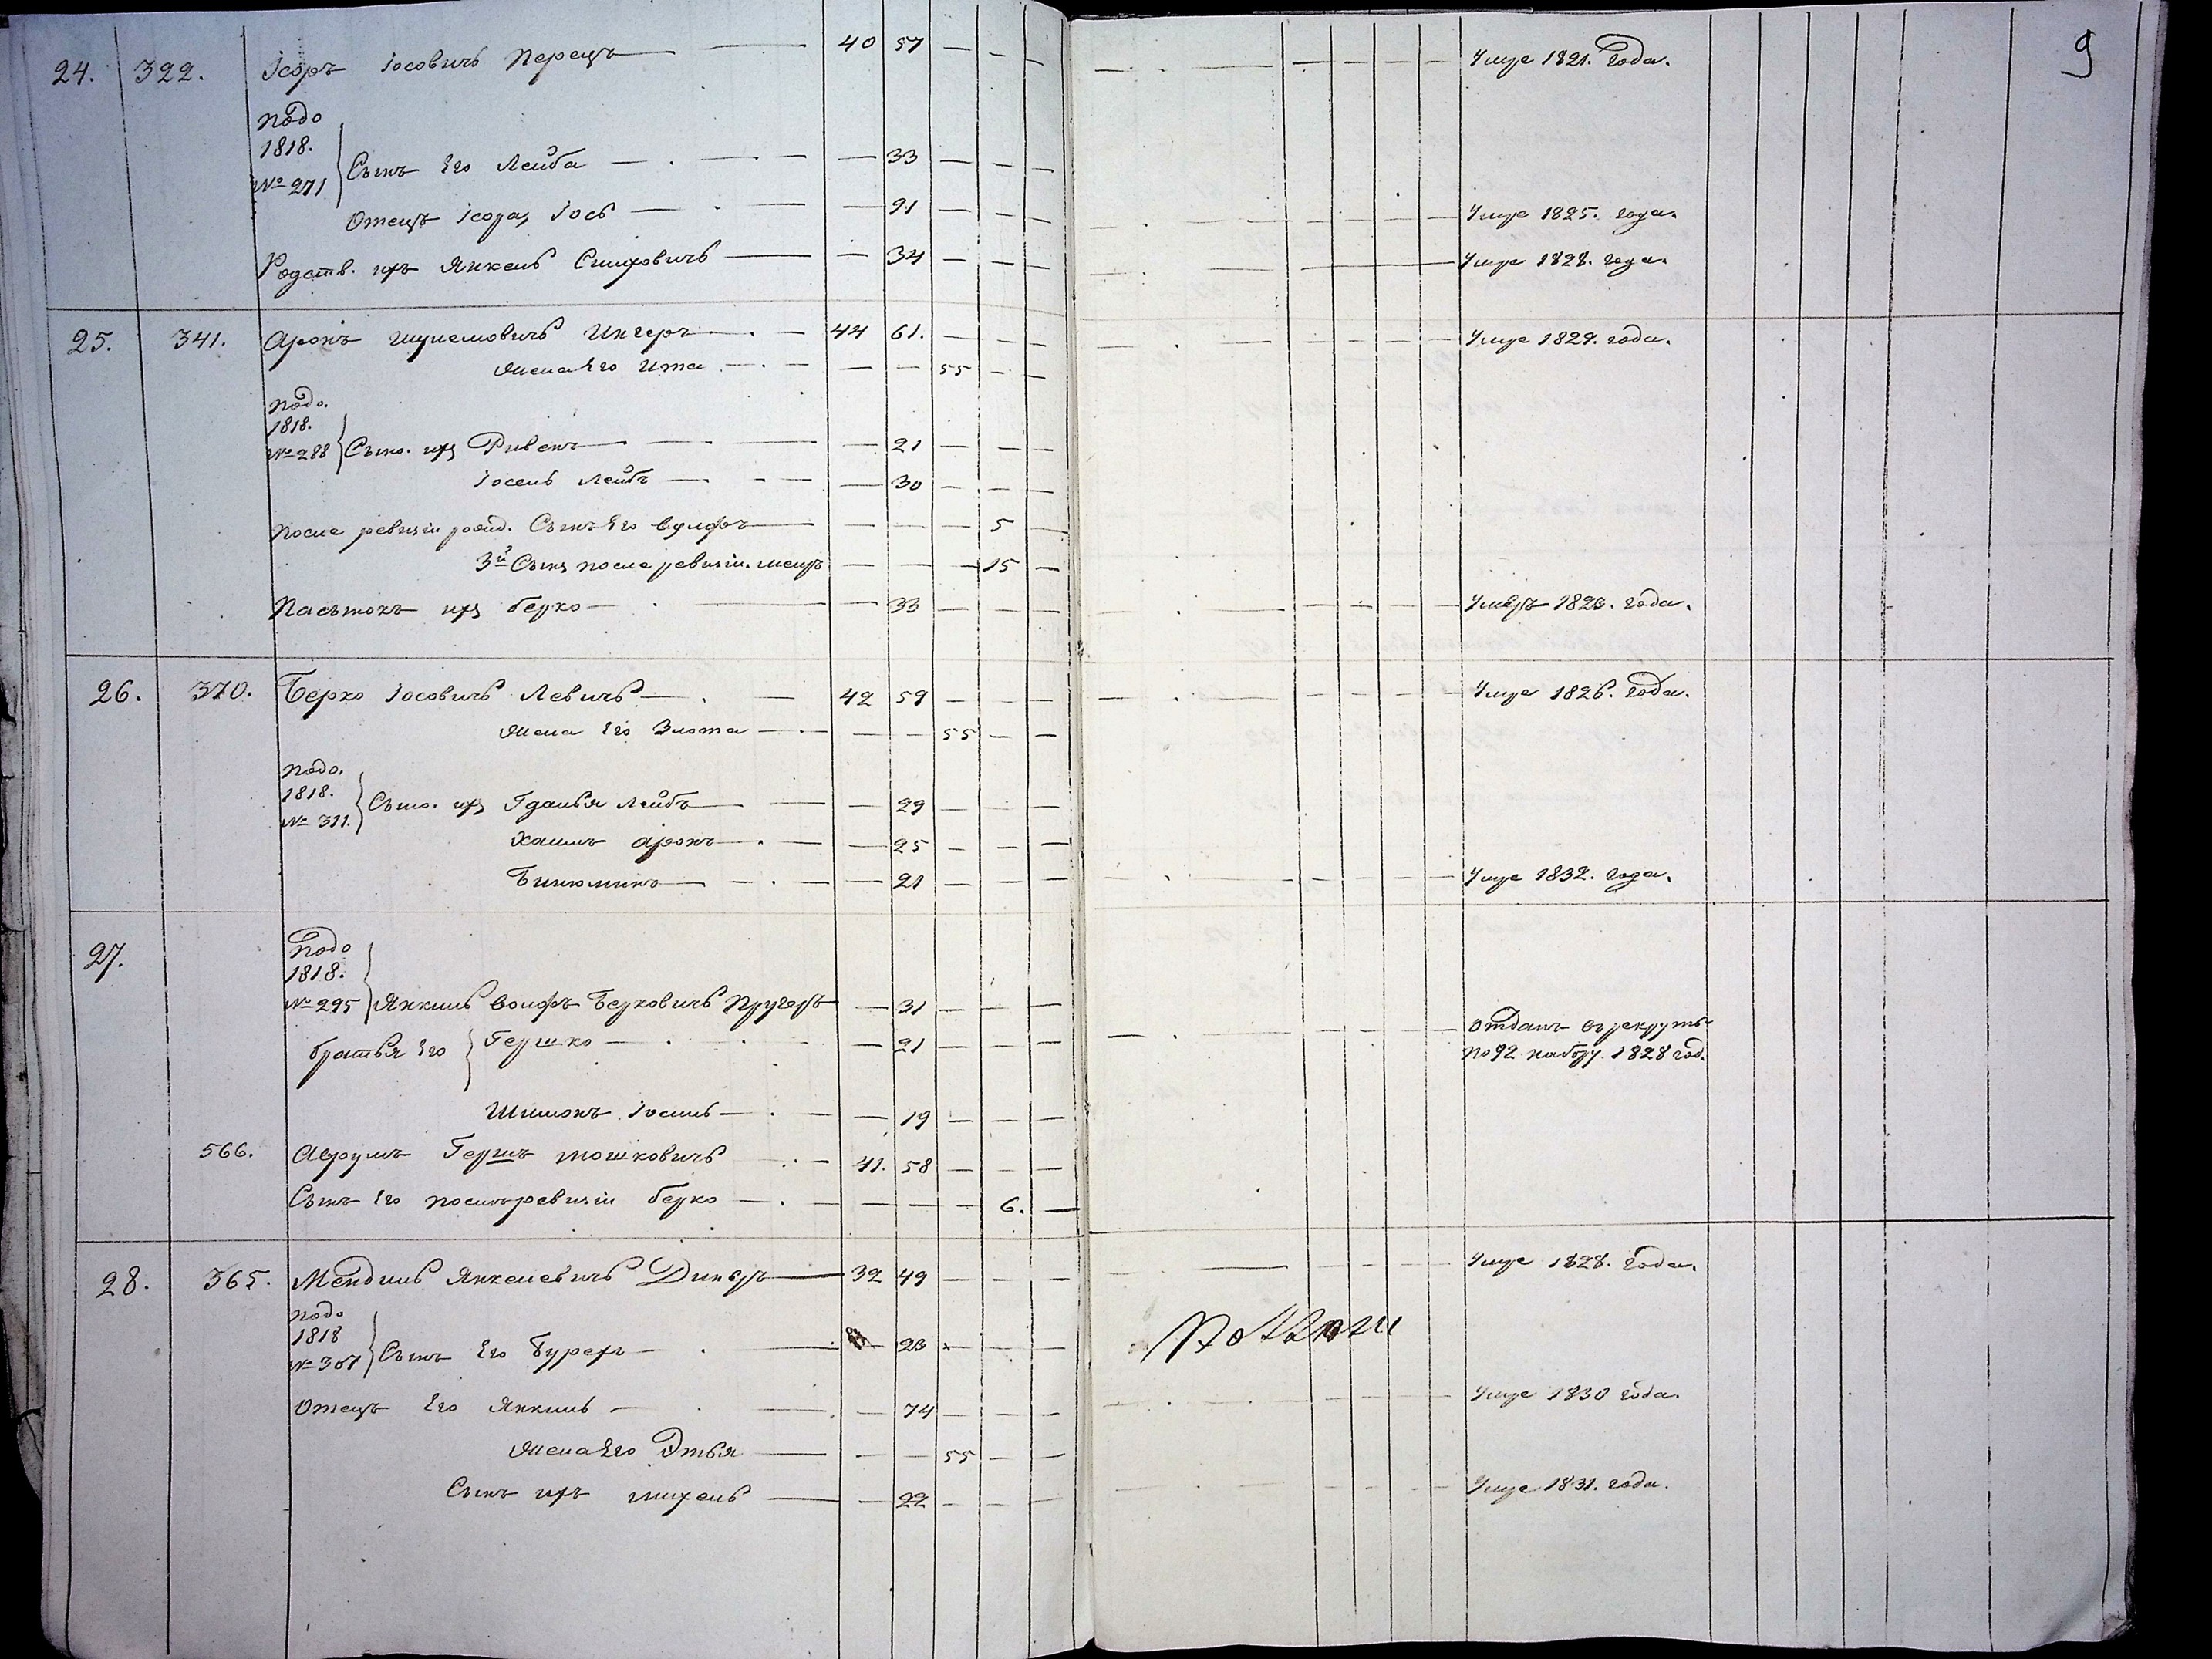 9
24. 322. Ісоръ Іосовичъ Перецъ — 40 57 — — — Умре 1821. года.
подо
1818.
№ 271 Сынъ Его Лейба — — 33 — — —
Отецъ Ісора, Іось — — 91 — — — Умре 1825. года.
Родств. ихъ Янкель Симховичъ — — 34 — — — Умре 1828. года.
25. 341. Аронъ Шулемовичъ Ингеръ — 44 61. — — — Умре 1829. года.
Жена Его Ита — — — 55 — —
подо.
1818.
№ 288 Сыно. ихъ Рувенъ — — 21 — — —
Іосель Лейбъ — — 30 — — —
После ревизіи рожд. Сынъ Его Вулфъ — — — — 5 —
3й Сынъ после ревизіи. Мееръ — — — 15 —
Пасынокъ ихъ Берко — — 33 — — — Умеръ 1823. года.
26. 370. Берко Іосовичъ Левичъ — 42 59 — — — Умре 1826. года.
Жена Его Злота — — — 55 — —
подо.
1818.
№ 311. Сыно. ихъ Гдалья Лейбъ — — 29 — — —
Хаимъ Аронъ — — 25 — — —
Биньминъ — — 21 — — — Умре 1832. года.
27. Подо
1818.
№ 295 Янкиль Волфъ Берковичъ Пругеръ — 31 — — —
братья Его Гершко — — 21 — — — Отданъ въ рекруты
по 92 набору 1828 год.
Шимонъ Іосиль — — 19 — — —
566. Аврумъ Гершъ Мошковичъ — 41. 58 — — —
Сынъ Его послъ ревизіи Берко — — — — 6. —
28. 365. Мендиль Янкелевичъ Динеръ — 32 49 — — — Умре 1828. года.
подо
1818
№ 307 Сынъ Его Бурехъ — 23 — — —
Отецъ Его Янкиль — — 74 — — — Умре 1830 года.
Жена Его Этья — — — 55 — —
Сынъ ихъ Михель — — 22 — — — Умре 1831. года.